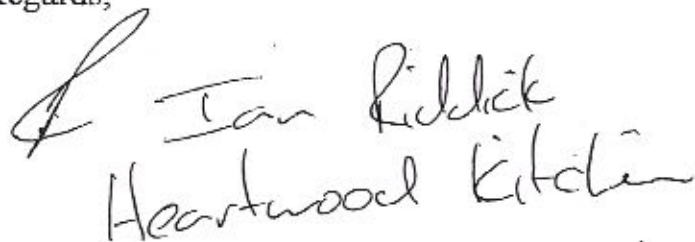 Regards,
Ian Riddick
Heartwood Kitchen